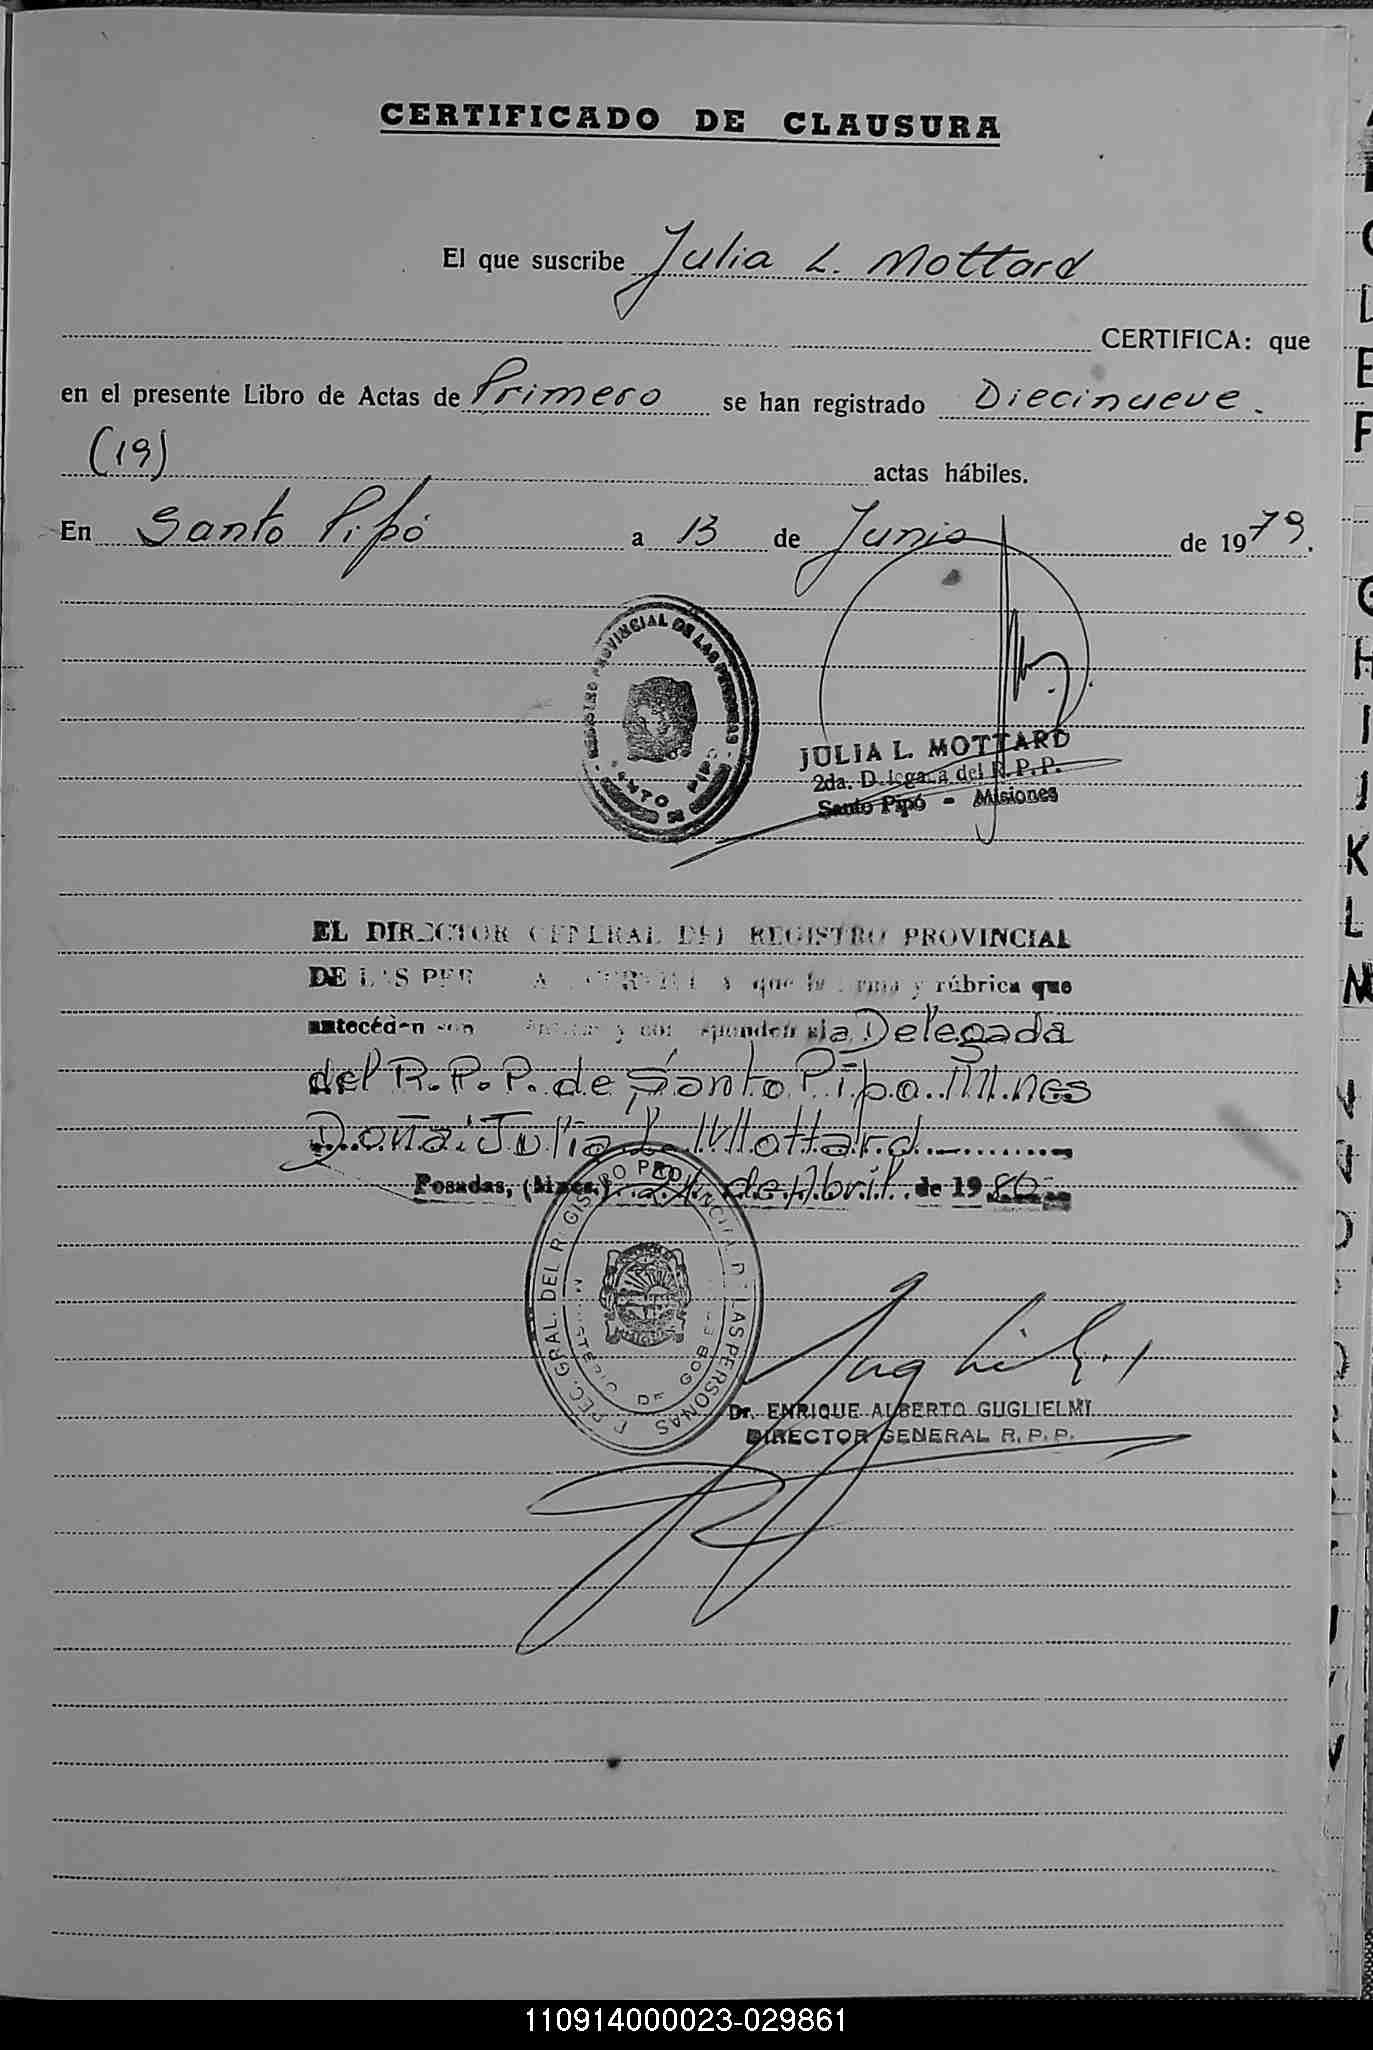 CERTIFICADO DE CLAUSURA
El que suscribe Julia L. Mottard
CERTIFICA: que
en el presente Libro de Actas de Primero se han registrado Diecinueve.
(19) actas hábiles.
En Santo Pipó a 13 de Junio de 1979.
REGISTRO PROVINCIAL DE LAS PERSONAS
SANTO PIPÓ
JULIA L. MOTTARD
2da. Delegada del R.P.P.
Santo Pipó - Misiones
EL DIRECTOR GENERAL DEL REGISTRO PROVINCIAL
DE LAS PER que la firma y rúbrica que
anteceden son y corresponden a la Delegada
del R.P.P. de Santo Pipo Mnes
Doña: Julia L. Mottard
Posadas, (Mnes.) 24 de Abril de 1980
DIREC. GRAL. DEL REGISTRO PROVINCIAL DE LAS PERSONAS
MINISTERIO DE GOBIERNO
Dr. ENRIQUE ALBERTO GUGLIELMI
DIRECTOR GENERAL R.P.P.
C
L
E
F
G
H
I
J
K
L
M
110914000023-029861